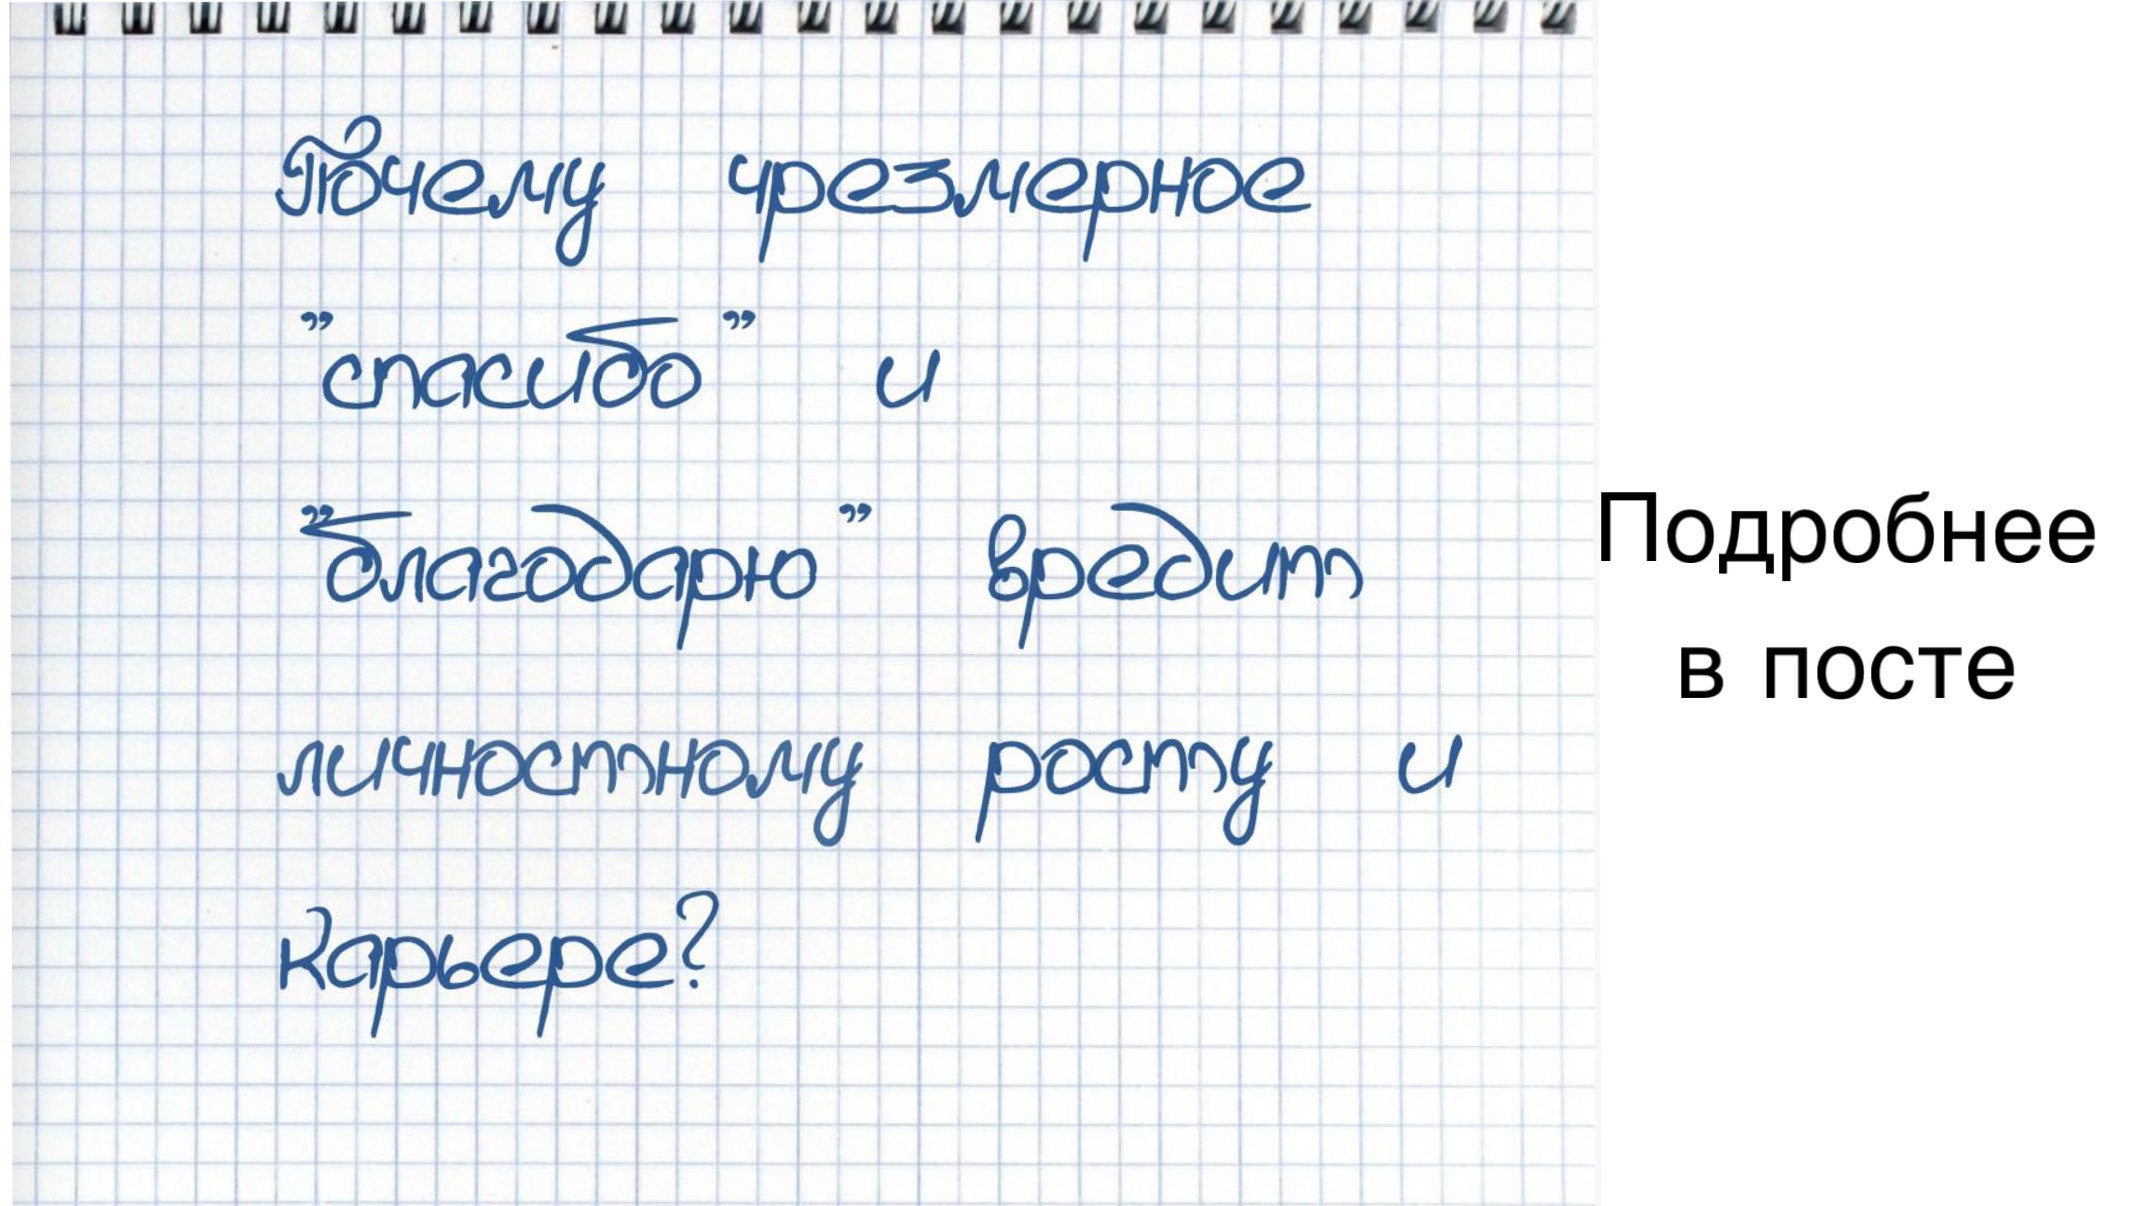 Почему чрезмерное
"спасибо" и
"благодарю" вредит
личностному росту и
карьере?
Подробнее
в посте